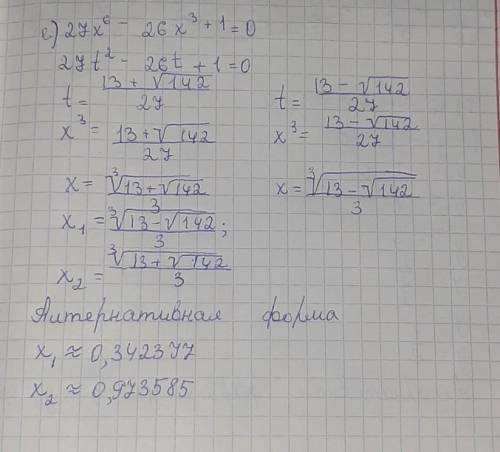 e) 27x⁶ - 26x³ + 1 = 0
27t² - 26t + 1 = 0
t = (13 + √142)/27   t = (13 - √142)/27
x³ = (13 + √142)/27   x³ = (13 - √142)/27
x = ∛(13 + √142)/3   x = ∛(13 - √142)/3
x₁ = ∛(13 - √142)/3;
x₂ = ∛(13 + √142)/3
Алтернативная форма
x₁ ≈ 0,342377
x₂ ≈ 0,973585